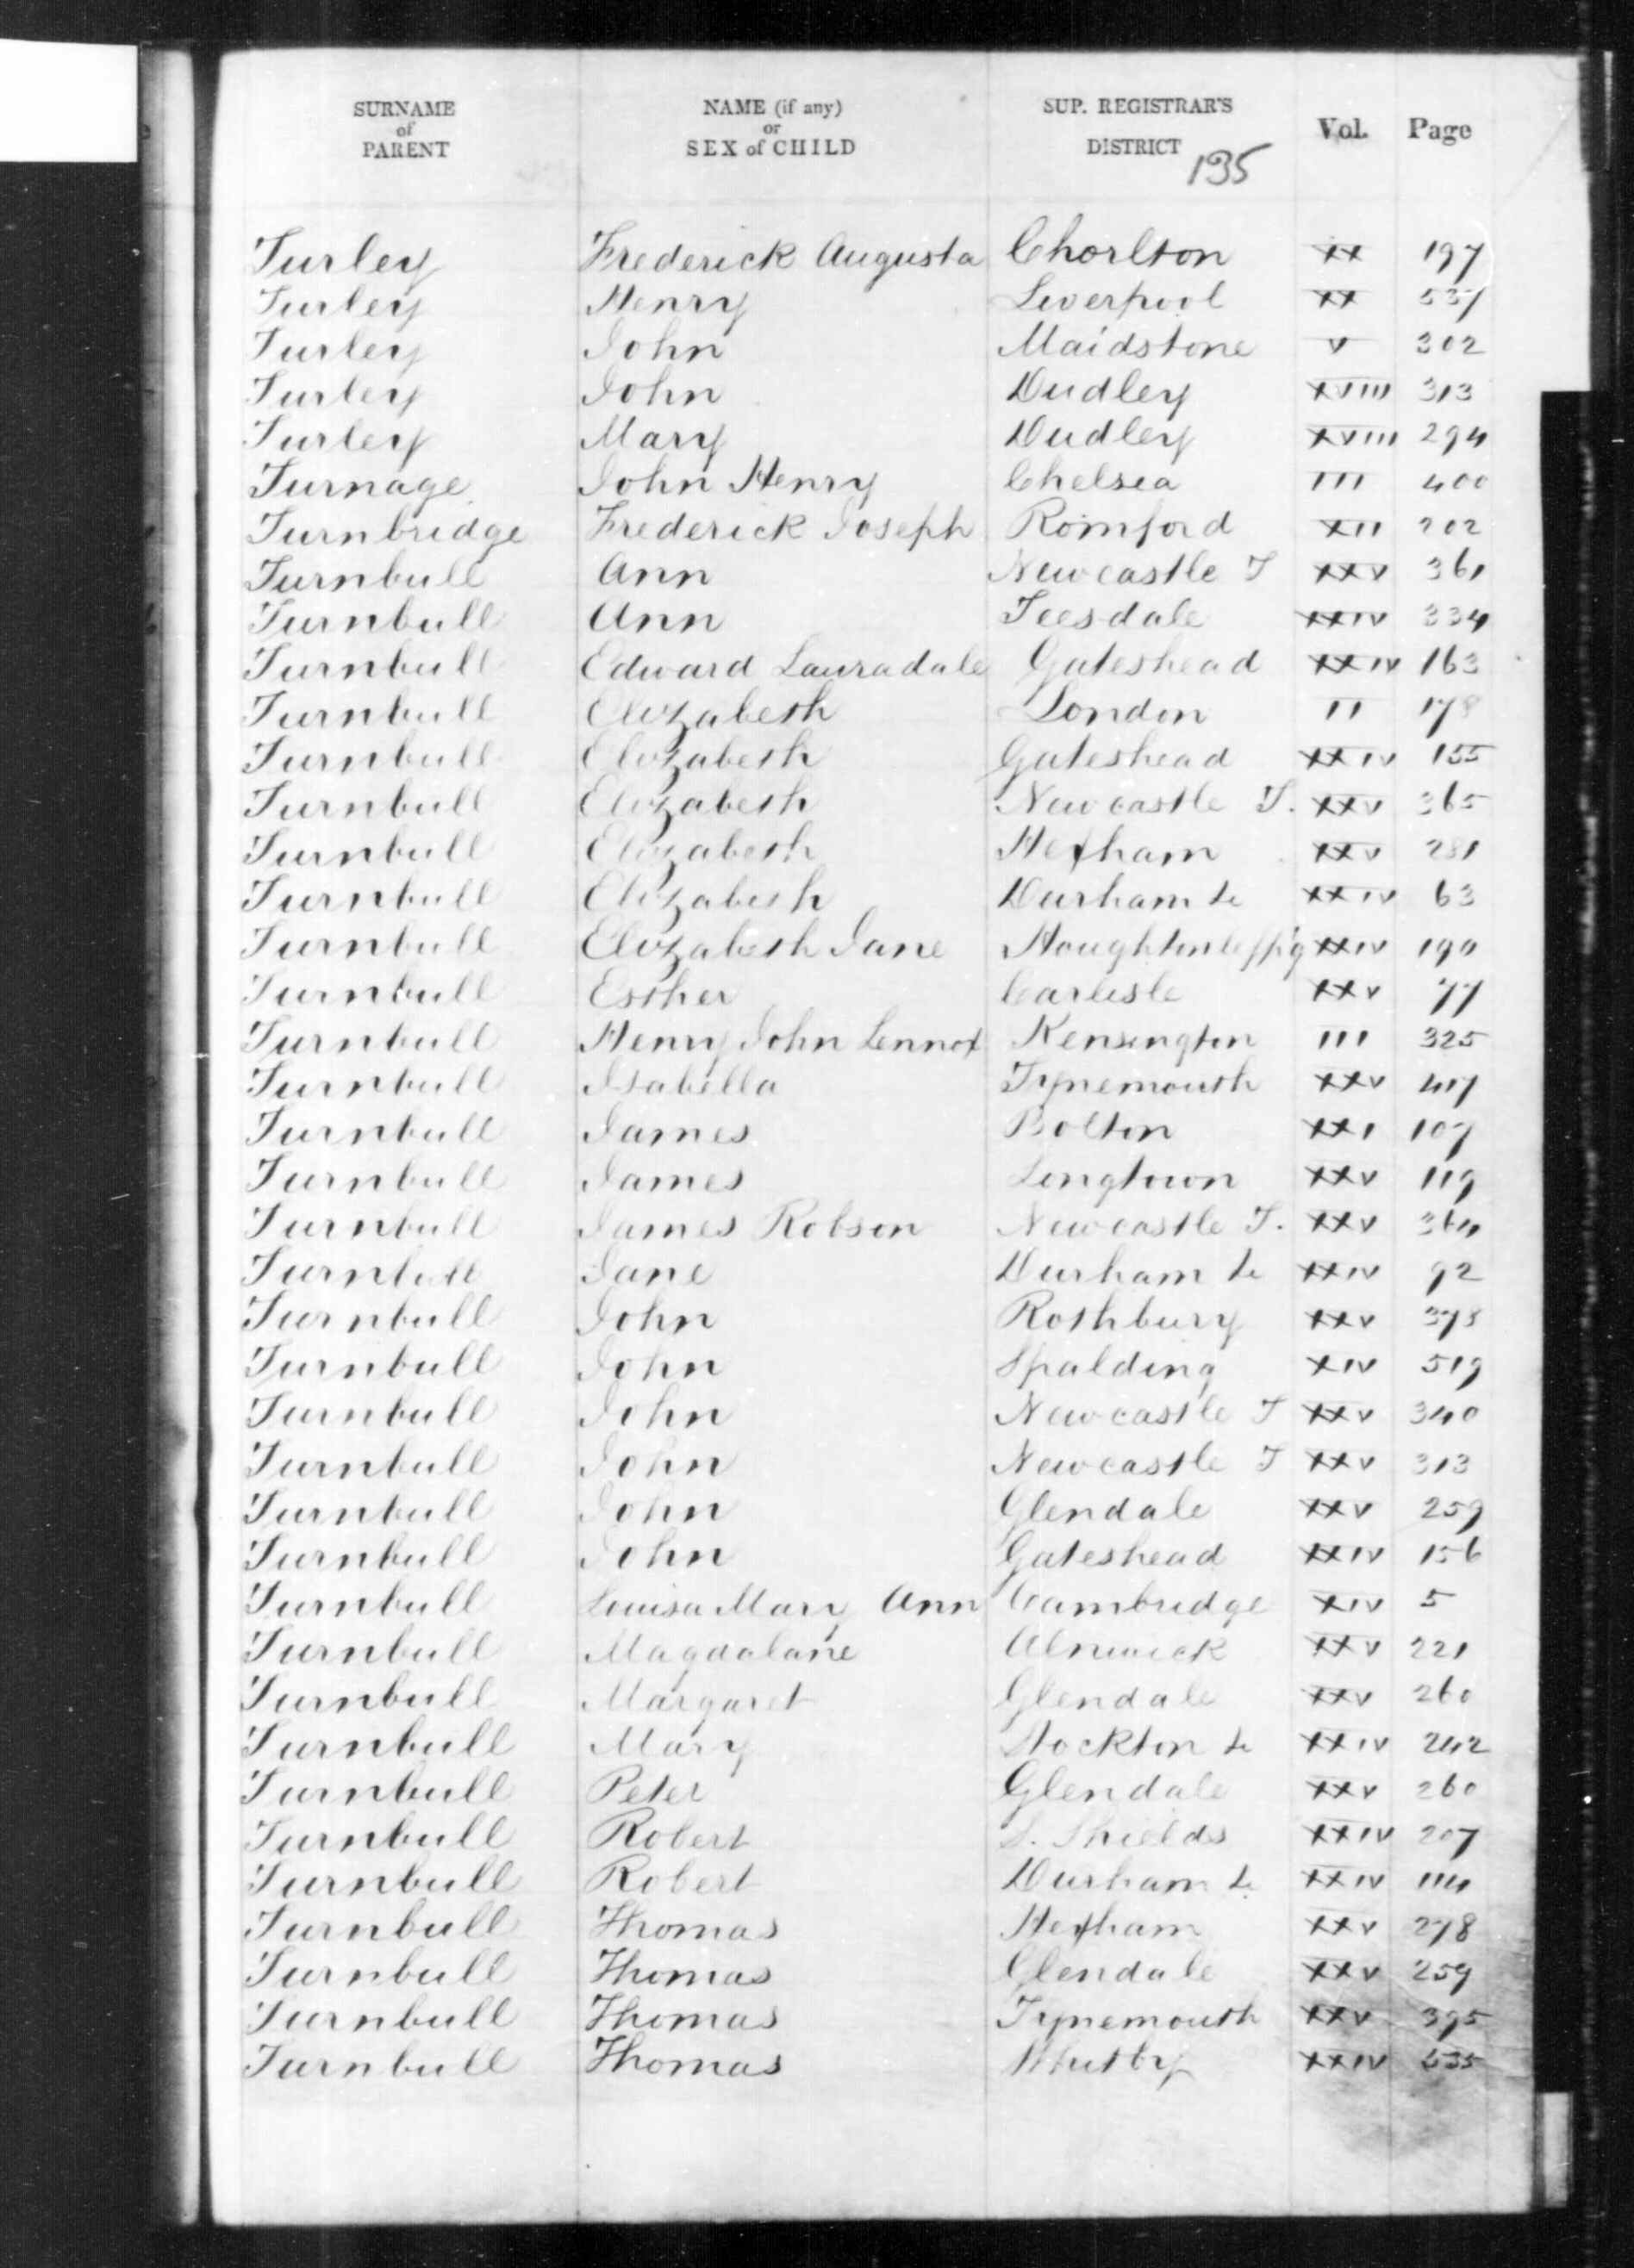 SURNAME of PARENT NAME (if any) or SEX of CHILD SUP. REGISTRAR'S DISTRICT Vol. Page
195
Turley Frederick Augusta Chorlton XX 197
Turley Henry Liverpool XX 537
Turley John Maidstone V 302
Turley John Dudley XVIII 313
Turley Mary Dudley XVIII 294
Turnage John Henry Chelsea III 400
Turnbridge Frederick Joseph Romford XII 202
Turnbull Ann Newcastle T XXV 361
Turnbull Ann Teesdale XXIV 334
Turnbull Edward Lauradale Gateshead XXIV 163
Turnbull Elizabeth London II 178
Turnbull Elizabeth Gateshead XXIV 155
Turnbull Elizabeth Newcastle T. XXV 365
Turnbull Elizabeth Hexham XXV 281
Turnbull Elizabeth Durham &c XXIV 63
Turnbull Elizabeth Jane XXIV 190
Turnbull Esther Carlisle XXV 77
Turnbull Henry John Lennox Kensington III 325
Turnbull Isabella Tynemouth XXV 417
Turnbull James Bolton XXI 107
Turnbull James Longtown XXV 119
Turnbull James Robson Newcastle T. XXV 364
Turnbull Jane Durham &c XXIV 92
Turnbull John Rothbury XXV 378
Turnbull John Spalding XIV 519
Turnbull John Newcastle T XXV 340
Turnbull John Newcastle T XXV 313
Turnbull John Glendale XXV 259
Turnbull John Gateshead XXIV 156
Turnbull Louisa Mary Ann Cambridge XIV 5
Turnbull Magdalane Alnwick XXV 221
Turnbull Margaret Glendale XXV 260
Turnbull Mary Stockton &c XXIV 242
Turnbull Peter Glendale XXV 260
Turnbull Robert S. Shields XXIV 207
Turnbull Robert Durham &c XXIV 114
Turnbull Thomas Hexham XXV 278
Turnbull Thomas Glendale XXV 259
Turnbull Thomas Tynemouth XXV 395
Turnbull Thomas Whitby XXIV 535